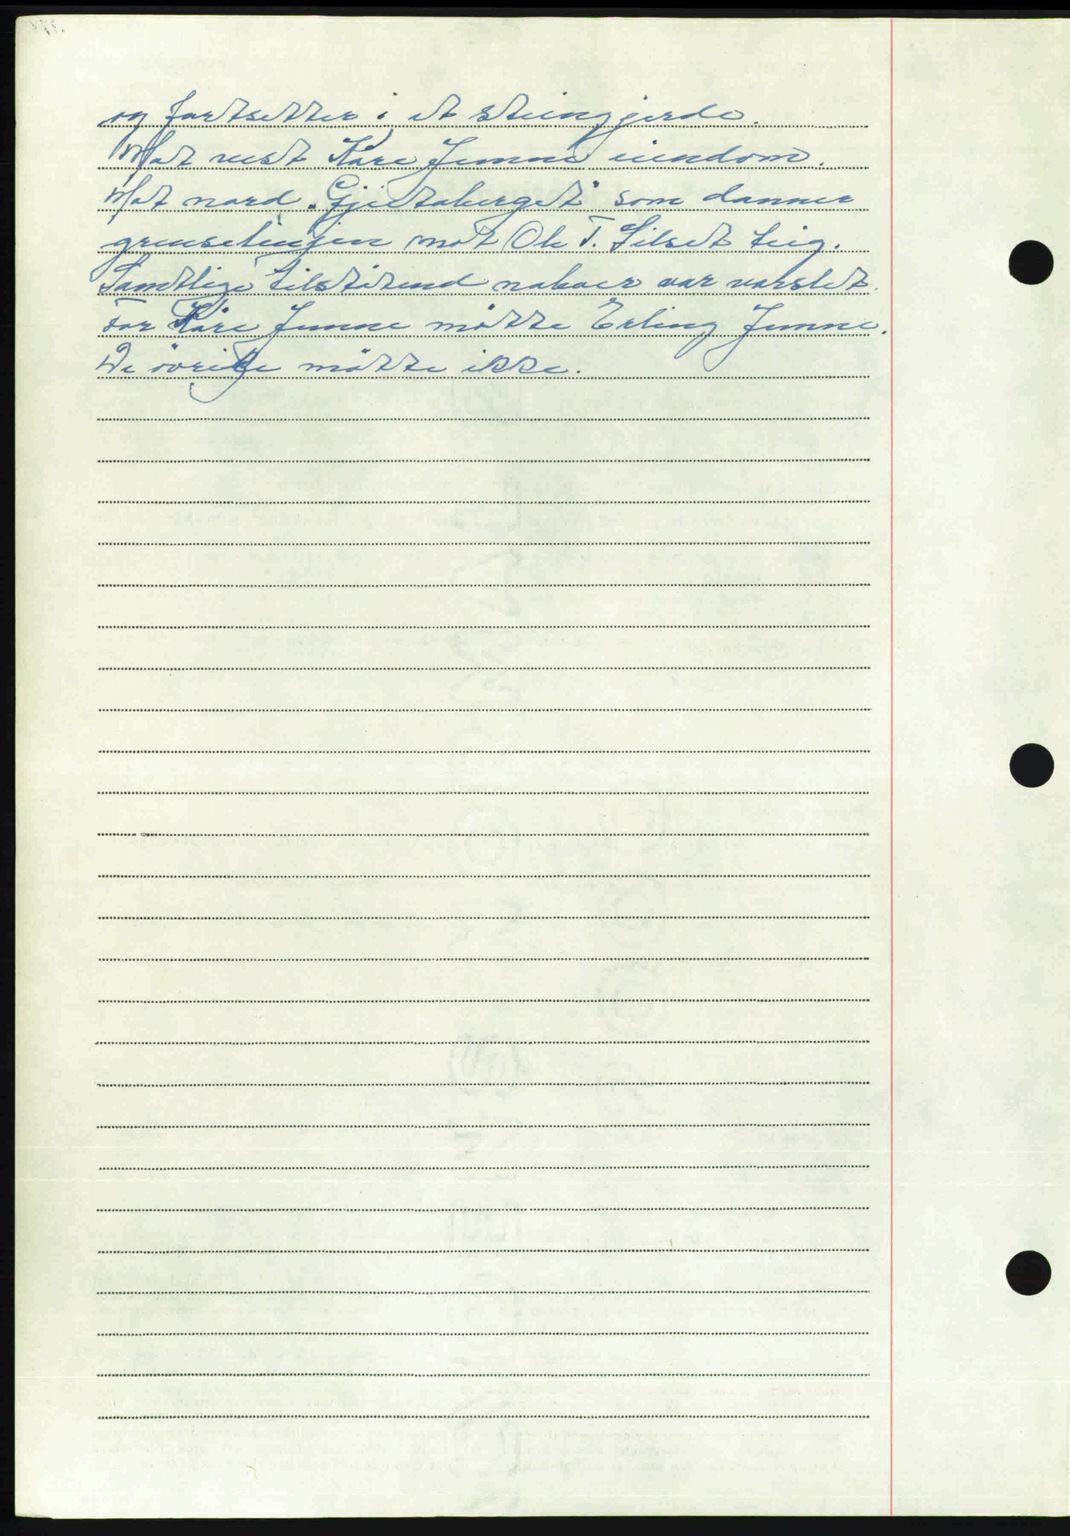 og fortsetter i et steingjerde.
Mot vest Kåre Jenne eiendom.
Mot nord „Gjeitaberget" som danner
grenselinjen mot Ole T. Silset teig.
Samtlige tilstötend naboer var varslet.
For Kåre Jenne mötte Erling Jenne.
De övrige mötte ikke.